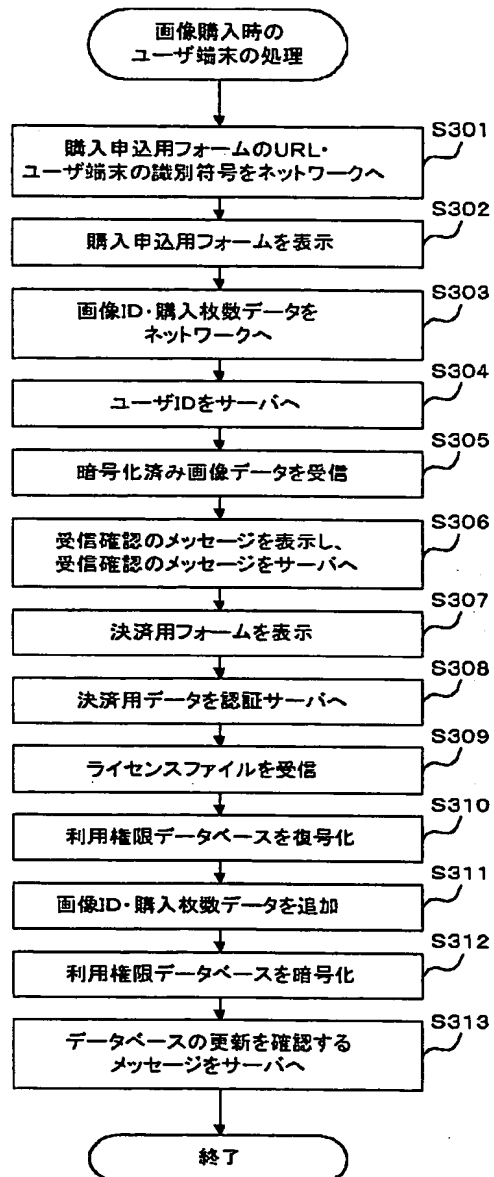 画像購入時の
ユーザ端末の処理
S301
購入申込用フォームのURL・
ユーザ端末の識別符号をネットワークへ
S302
購入申込用フォームを表示
S303
画像ID・購入枚数データを
ネットワークへ
S304
ユーザIDをサーバへ
S305
暗号化済み画像データを受信
S306
受信確認のメッセージを表示し、
受信確認のメッセージをサーバへ
S307
決済用フォームを表示
S308
決済用データを認証サーバへ
S309
ライセンスファイルを受信
S310
利用権限データベースを復号化
S311
画像ID・購入枚数データを追加
S312
利用権限データベースを暗号化
S313
データベースの更新を確認する
メッセージをサーバへ
終了